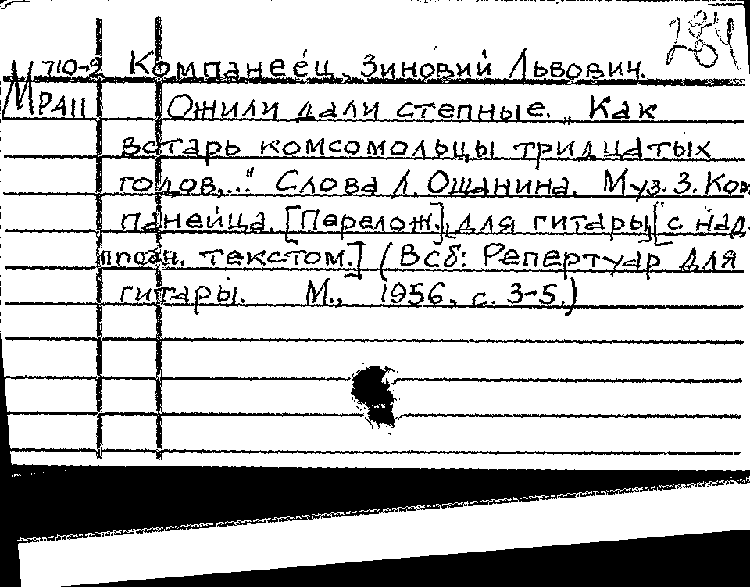 284
М 710-2 Компанеец, Зиновий Львович.
РАII Ожили дали степные. „Как
встарь комсомольцы тридцатых
годов..." Слова Л. Ошанина. Муз. З. Ком
панейца. [Перелож.] для гитары [с над
писан. текстом.] (В сб: Репертуар для
гитары. М., 1956, с. 3-5.)